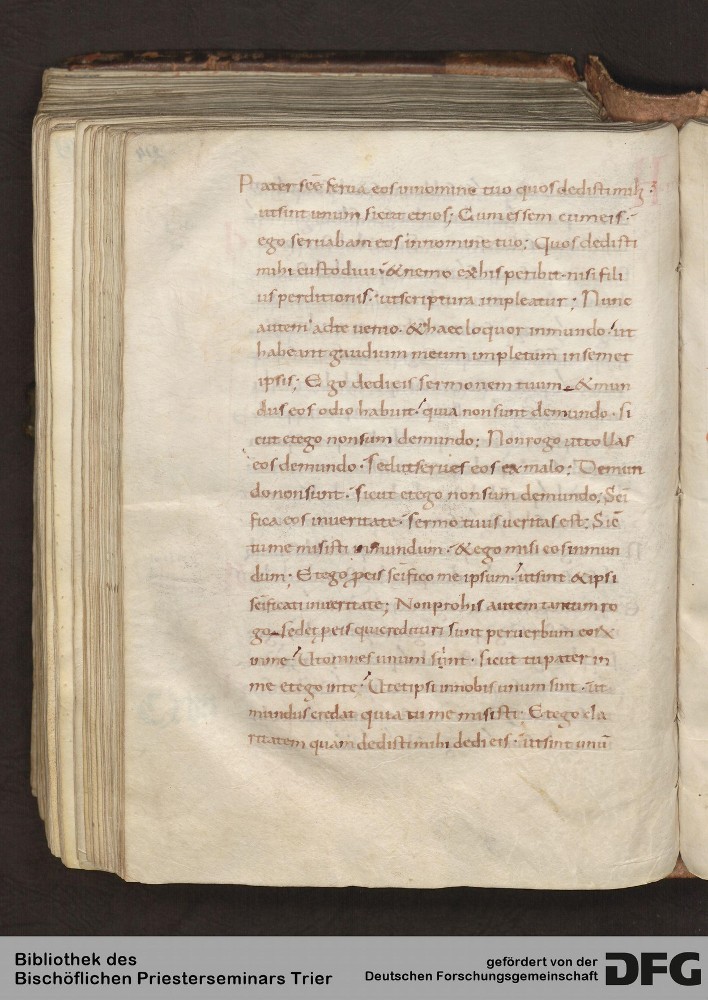 Pater sc̄e serua eos innomine tuo quos dedisti mihi
utsint unum sicut etnos; Cum essem cum eis·
ego seruabam eos innomine tuo; Quos dedisti
mihi custodiui· &nemo exhis peribit· nisi fili
us perditionis· utscriptura impleatur; Nunc
autem adte uenio· &haec loquor inmundo· ut
habeant gaudium meum impletum insemet
ipsis; Ego dedi eis sermonem tuum· &mun
dus eos odio habuit· quia non sunt demundo· si
cut etego non sum demundo; Non rogo ut tollas
eos demundo· sed utserues eos ex malo; Demun
do non sunt· sicut etego non sum demundo; Sc̄i
fica eos inueritate· sermo tuus ueritas est; Sic̄
tu me misisti inmundum· &ego misi eos inmun
dum; Etego p̱eis sc̄ifico me ipsum· utsint &ipsi
sc̄ificati inueritate; Non prohis autem tantum ro
go· sed et p̱eis qui credituri sunt peruerbum eor̄
inme· Ut omnes unum sint· sicut tu pater in
me etego inte· Ut etipsi innobis unum sint· ut
mundus credat quia tu me misisti; Etego cla
ritatem quam dedisti mihi dedi eis· utsint unū
Bibliothek des
Bischöflichen Priesterseminars Trier
gefördert von der
Deutschen Forschungsgemeinschaft
DFG